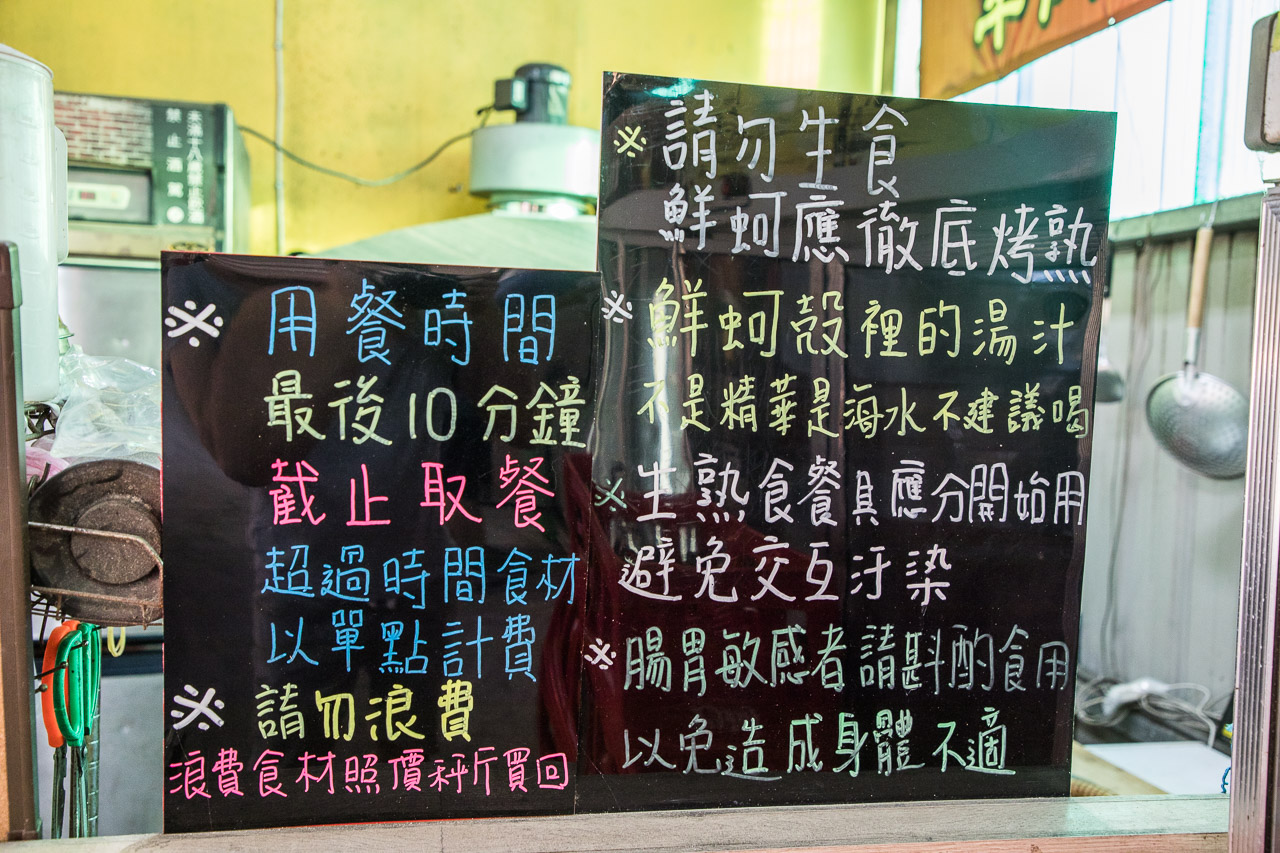 未滿十八歲禁止飲酒
禁止酒駕
※用餐時間
最後10分鐘
截止取餐
超過時間食材
以單點計費
※請勿浪費
浪費食材照價秤斤買回
※請勿生食
鮮蚵應徹底烤熟
※鮮蚵殼裡的湯汁
不是精華是海水不建議喝
※生熟食餐具應分開始用
避免交互汙染
※腸胃敏感者請斟酌食用
以免造成身體不適